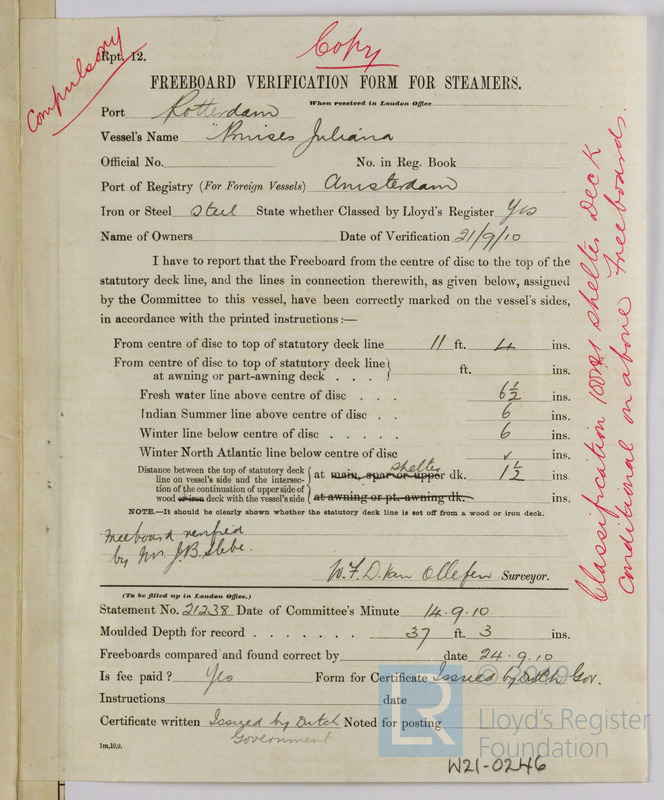 Compulsory
Copy
Rpt. 12.
FREEBOARD VERIFICATION FORM FOR STEAMERS.
When received in London Office
Port Rotterdam
Vessel's Name "Prinses Juliana
Official No. No. in Reg. Book
Port of Registry (For Foreign Vessels) Amsterdam
Iron or Steel Steel State whether Classed by Lloyd's Register Yes
Name of Owners Date of Verification 21/9/10
I have to report that the Freeboard from the centre of disc to the top of the
statutory deck line, and the lines in connection therewith, as given below, assigned
by the Committee to this vessel, have been correctly marked on the vessel's sides,
in accordance with the printed instructions:—
From centre of disc to top of statutory deck line 11 ft. 4 ins.
From centre of disc to top of statutory deck line
at awning or part-awning deck . . . ft. ins.
Fresh water line above centre of disc . . . 6½ ins.
Indian Summer line above centre of disc . . 6 ins.
Winter line below centre of disc . . . . . 6 ins.
Winter North Atlantic line below centre of disc ✓ ins.
Distance between the top of statutory deck
line on vessel's side and the intersec-
tion of the continuation of upper side of
wood or iron deck with the vessel's side
at main, spar or upper dk. shelter 1½ ins.
at awning or pt. awning dk. ins.
NOTE.—It should be clearly shown whether the statutory deck line is set off from a wood or iron deck.
Freeboard verified
by Mr J.B. Stebe.
W.F.D. Van Ollefen Surveyor.
(To be filled up in London Office.)
Statement No. 21238 Date of Committee's Minute 14.9.10
Moulded Depth for record . . . . . . . 37 ft. 3 ins.
Freeboards compared and found correct by date 24.9.10
Is fee paid? Yes Form for Certificate Issued by Dutch Gov.
Instructions date
Certificate written Issued by Dutch Noted for posting
Government
1m,10,9.
Classification 100A1 shelter deck
conditional on above freeboards.
LR
© 2019
Lloyd's Register
Foundation
W21-0246